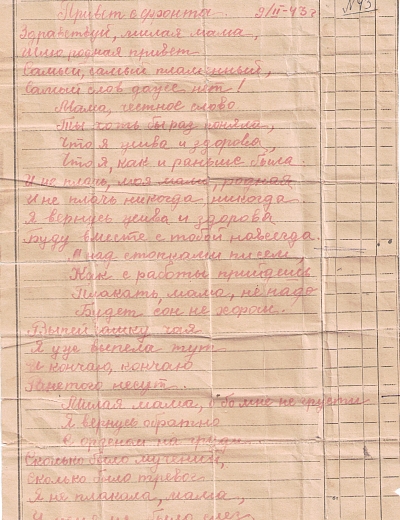 Привет с фронта. 9/II-43 г №43
Здравствуй, милая мама,
Шлю родная привет
Самый, самый пламенный,
Самый слов даже нет!
Мама, честное слово
Ты хоть бы раз поняла,
Что я жива и здорова,
Что я, как и раньше была.
И не плачь, моя мама, родная
И не плачь никогда никогда
Я вернусь жива и здорова
Буду вместе с тобой навсегда.
А над стопками писем,
Как с работы прийдешь
Плакать, мама, не надо
Будет сон не хорош.
Выпей чашку чая
Я уже выпила тут
И кончаю, кончаю
несут.
Милая мама, обо мне не грусти
Я вернусь обратно
С орденом на груди.
Сколько было мучений,
Сколько было тревог
Я не плакила, мама,
было слез